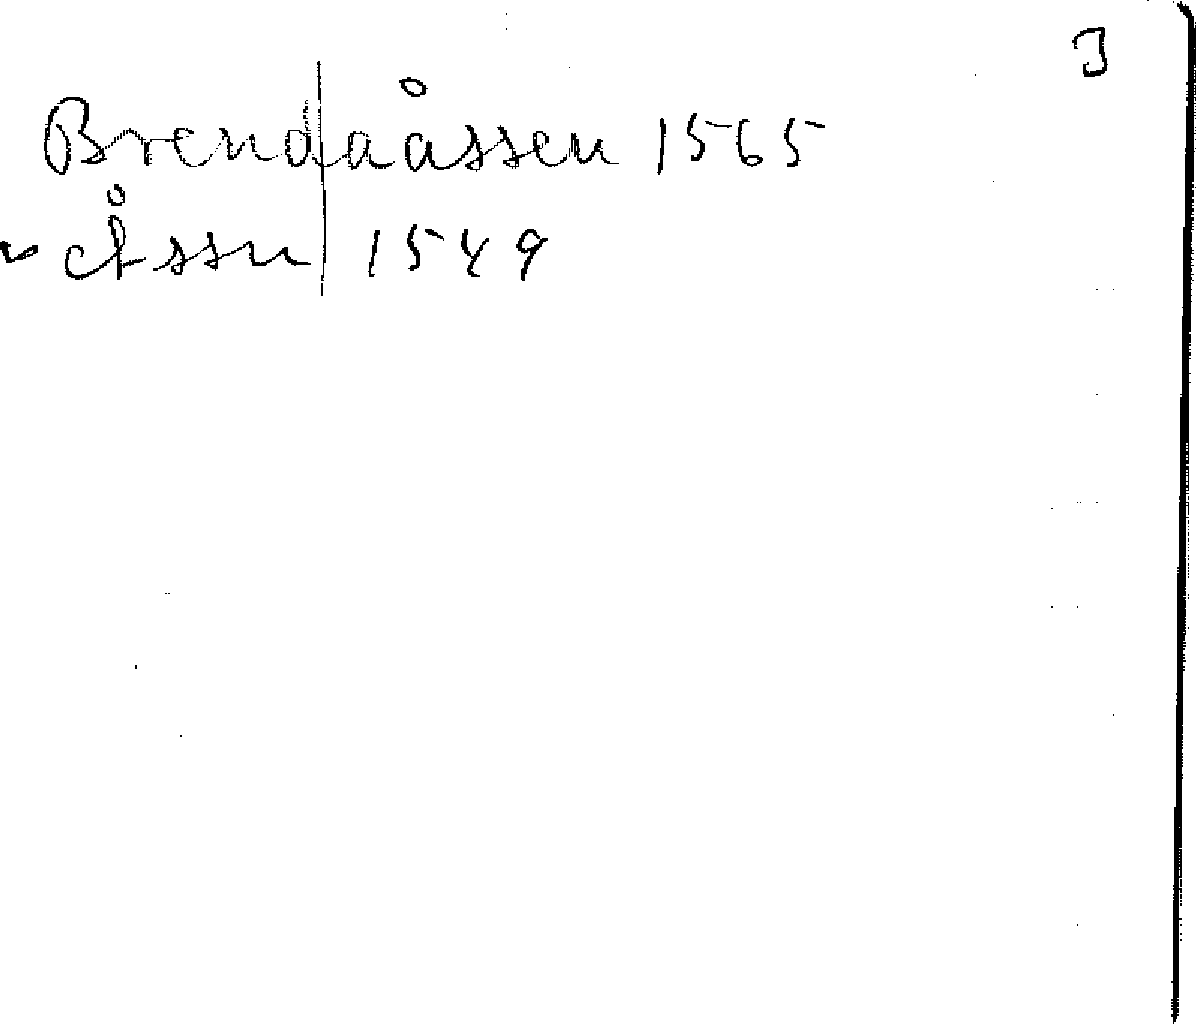 J
Brendaåssen 1565
Åssen 1549